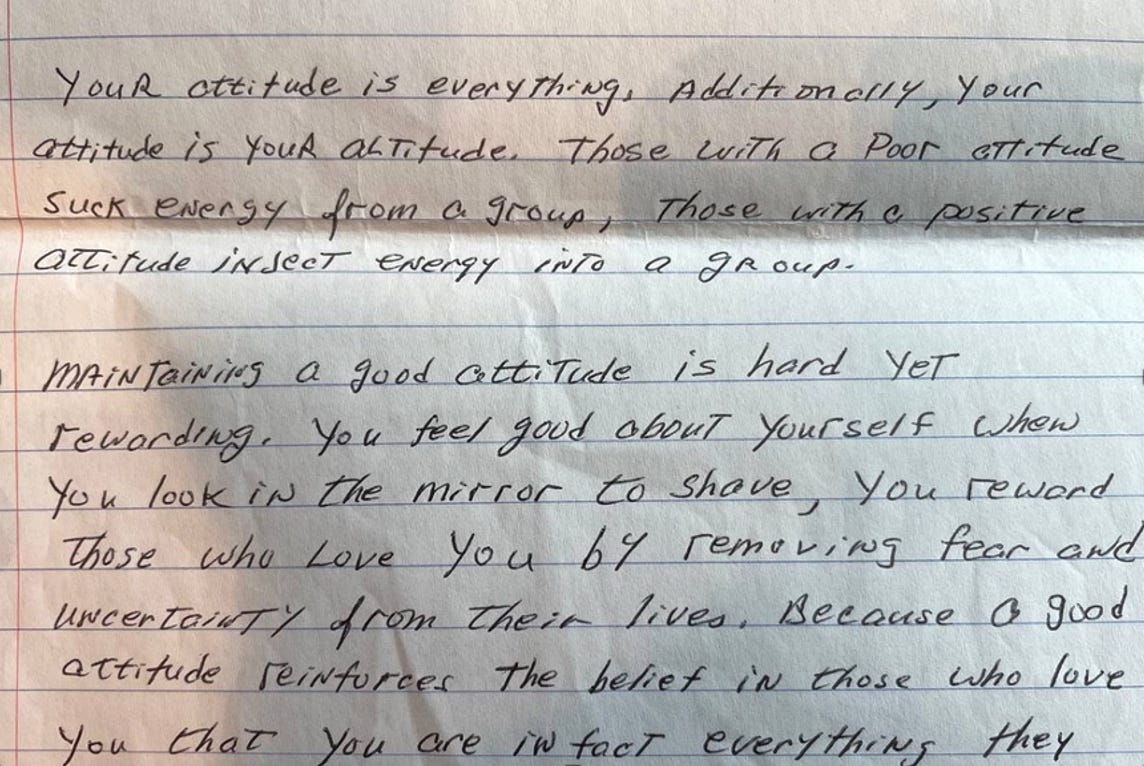 Your attitude is everything. Additionally, your
attitude is your altitude. Those with a poor attitude
suck energy from a group, Those with a positive
attitude insect energy into a group.
Maintaining a good attitude is hard yet
rewarding. You feel good about yourself when
you look in the mirror to shave, you reward
those who love you by removing fear and
uncertainty from their lives. Because a good
attitude reinforces the belief in those who love
you that you are in fact everything they